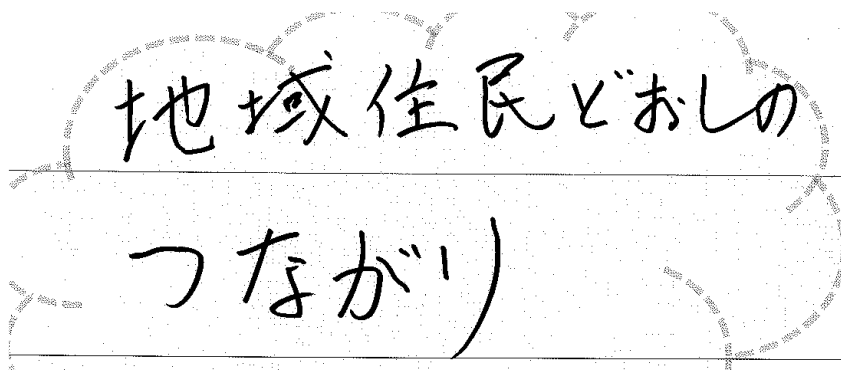 地域住民どおしの
つながり